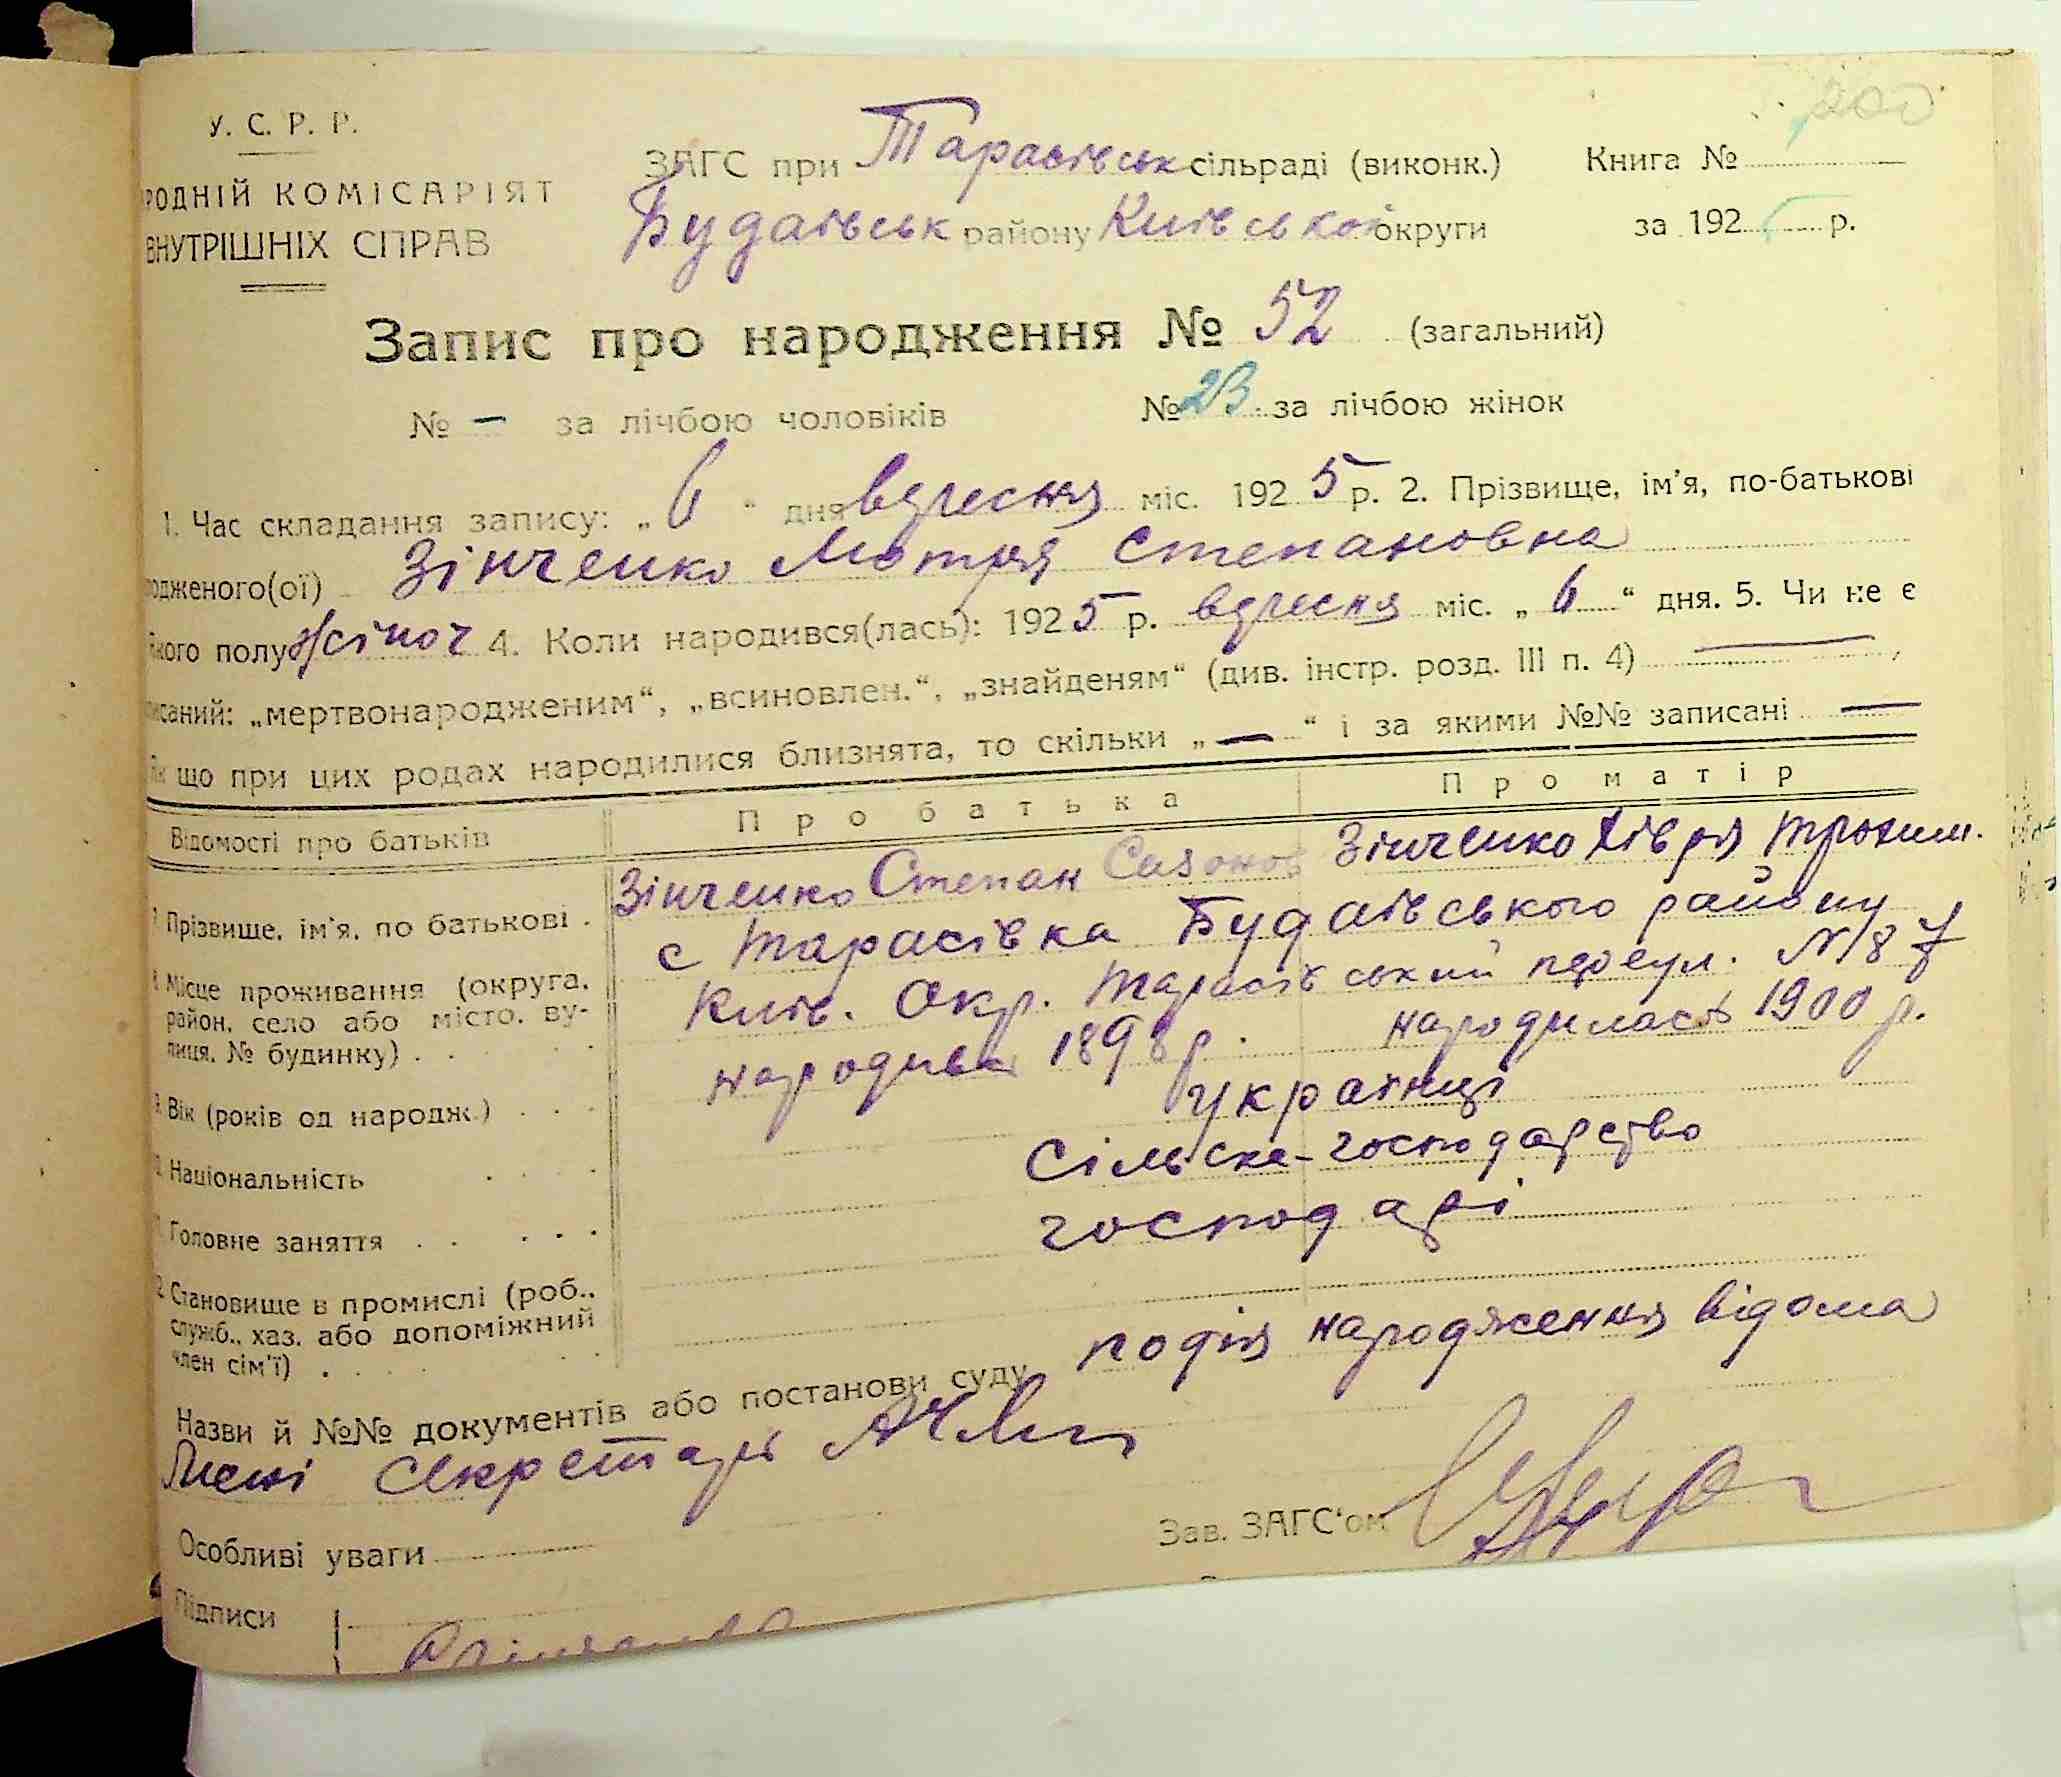 200
У. С. Р. Р.
РОДНІЙ КОМІСАРІЯТ
ВНУТРІШНІХ СПРАВ
ЗАГС при Тарасівськ сільраді (виконк.)
Будаївськ району Київської округи
Книга №
за 192 р.
Запис про народження № 52 (загальний)
№ — за лічбою чоловіків № 23 за лічбою жінок
1. Час складання запису: „ 6 “ дня вересня міс. 1925 р. 2. Прізвище, ім’я, по-батькові
одженого(ої) Зінченко Мотря Степановна
якого полу жіноч 4. Коли народився(лась): 1925 р. вересня міс. „ 6 “ дня. 5. Чи не є
писаний: „мертвонародженим“, „всиновлен.“, „знайденям“ (див. інстр. розд. III п. 4) — ,
Як що при цих родах народилися близнята, то скільки „ — “ і за якими №№ записані —
Відомості про батьків Про батька Про матір
Прізвище, ім’я, по батькові . Зінченко Степан Сазонов Зінченко Хівря Трохим.
Місце проживання (округа, район, село або місто, ву-
лиця, № будинку) . с Тарасівка Будаївського району
Київ. Окр. Тарасівський переул. № 87
9. Вік (років од народж.) . . . народився 1898 р. народилась 1900 р.
Національність українці
Головне заняття . . . . . Сільске-господарство
Становище в промислі (роб.,
служб., хаз. або допоміжний
член сім’ї) . господарі
Назви й №№ документів або постанови суду подія народження відома
Мені Секретарь
Особливі уваги
Зав. ЗАГС‘ом
Підписи